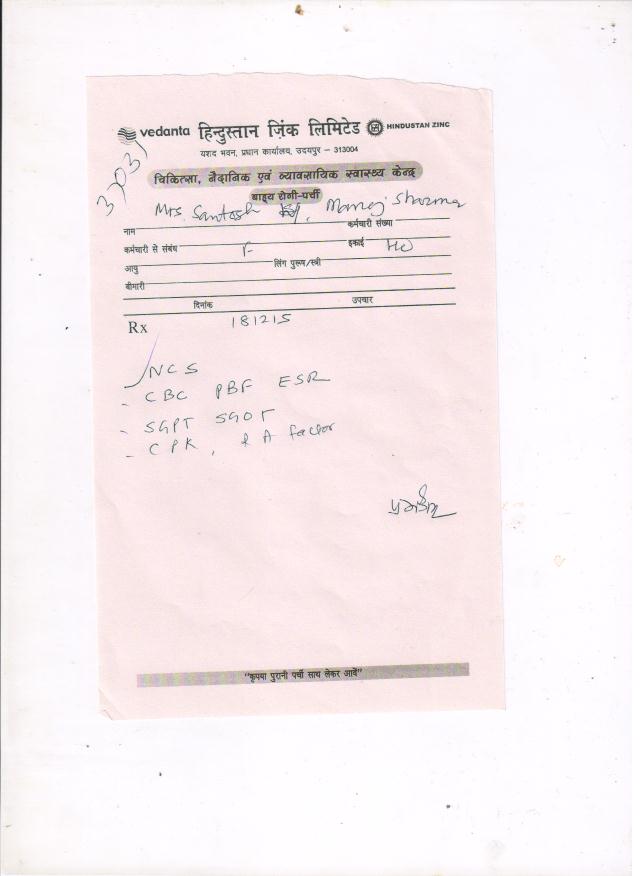 vedanta हिन्दुस्तान ज़िंक लिमिटेड HINDUSTAN ZINC
यशद भवन, प्रधान कार्यालय, उदयपुर – 313004
चिकित्सा, नैदानिक एवं व्यावसायिक स्वास्थ्य केन्द्र
बाह्य रोगी-पर्ची
3703
Mrs. Santosh Manoj Sharma
नाम कर्मचारी संख्या
कर्मचारी से संबंध F इकाई HO
आयु लिंग पुरूष/स्त्री
बीमारी
दिनांक उपचार
Rx 181215
NCS
- CBC PBF ESR
- SGPT SGOT
- CPK, RA factor
"कृपया पुरानी पर्ची साथ लेकर आवें"